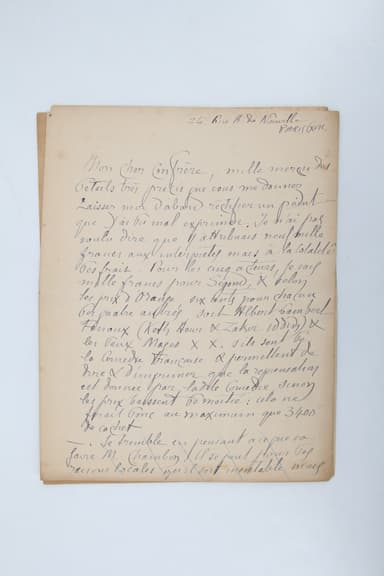 24 Rue A. de Neuville
PARIS XVII
Mon cher Confrère, mille mercis des
détails très précis que vous me donnez
Laissez moi d'abord rectifier un point
que j'ai dû mal exprimer. Je n'ai pas
voulu dire que j'attribuais neuf mille
francs aux interprètes mais à la totalité
des frais. Pour les cinq acteurs, je sais
mille francs pour Segond, & selon
les prix d'Orange, six cents pour chacun
des quatre autres soit Albert Lambert
&
les deux Mages X X. s'ils sont de
la Comédie française & permettent de
dire & d'imprimer que la représentation
est donnée par la dite Comédie, sinon
les prix baissent de moitié: cela ne
ferait donc au maximum que 3400
de cachet
—. Je tremble en pensant à ce que va
faire M. Chambon. Il se peut pour des
raisons locales qu'il soit inévitable mais